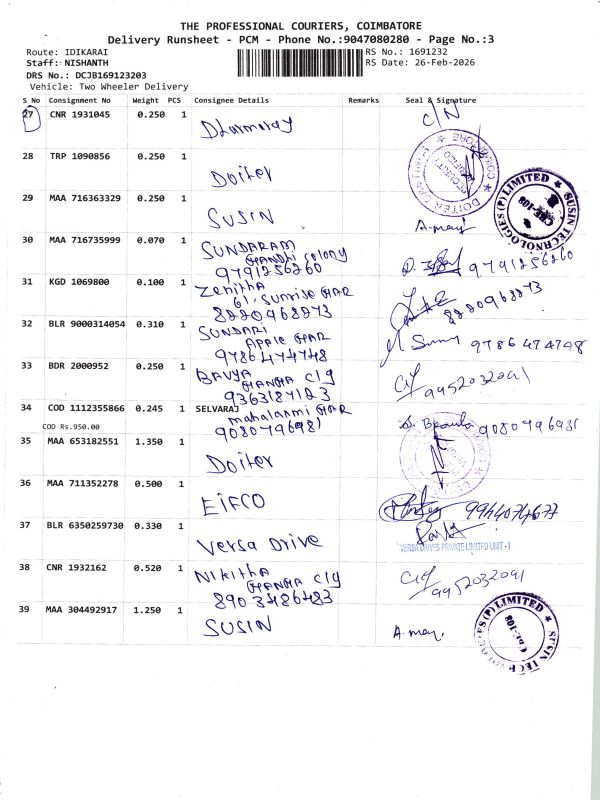 THE PROFESSIONAL COURIERS, COIMBATORE
Delivery Runsheet - PCM - Phone No.:9047080280 - Page No.:3
Route: IDIKARAI RS No.: 1691232
Staff: NISHANTH RS Date: 26-Feb-2026
DRS No.: DCJB169123203
Vehicle: Two Wheeler Delivery
S No Consignment No Weight PCS Consignee Details Remarks Seal & Signature
27 CNR 1931045 0.250 1 C/N
28 TRP 1090856 0.250 1
Doiter
29 MAA 716363329 0.250 1
SUSIN A.mary
SUSIN TECHNOLOGIES (P) LIMITED CBE-108
30 MAA 716735999 0.070 1 SUNDARAM
Gandhi colony
9791256260 9791256260
31 KGD 1069800 0.100 1 Zenitha
61, Sunrise
8220968273 8220968273
32 BLR 9000314054 0.310 1 SUNDARI
Apple
9786474748 9786474748
33 BDR 2000952 0.250 1 BAVYA
9363187123 9952032091
34 COD 1112355866 0.245 1 SELVARAJ
mahalaxmi
COD Rs.950.00 9080796981 9080796981
35 MAA 653182551 1.350 1
Doiter
36 MAA 711352278 0.500 1
EIFCO 9944074677
37 BLR 6350259730 0.330 1
Versa Drive
VERSA DRIVES PRIVATE LIMITED UNIT - I
38 CNR 1932162 0.520 1 Nikitha
8903486483 9952032091
39 MAA 304492917 1.250 1
SUSIN A.mary
SUSIN TECHNOLOGIES (P) LIMITED CBE-108